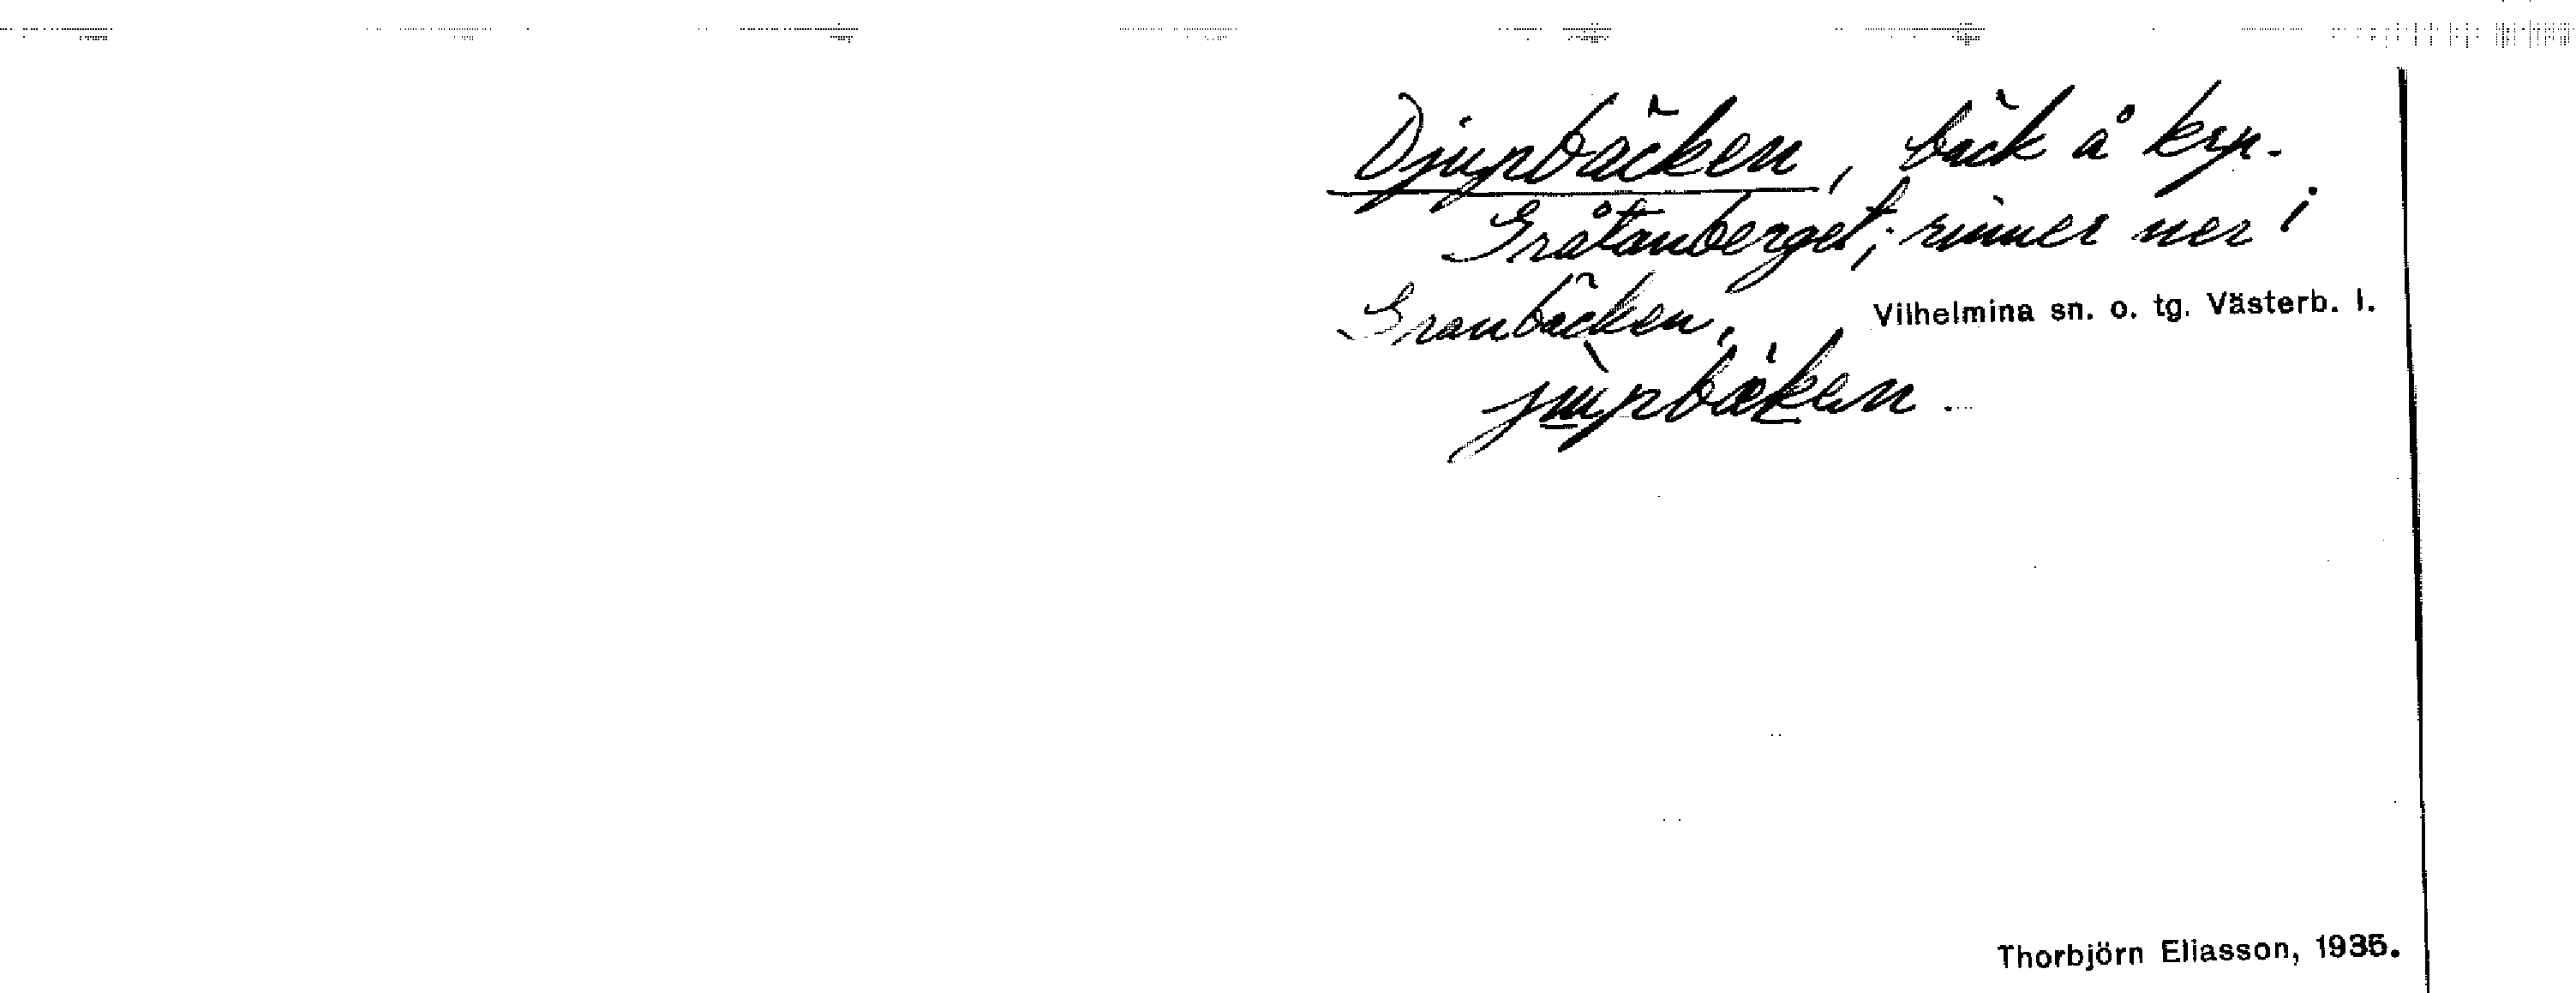 Djupbäcken, bäck å krp.
Gråtanberget; rinner ner i
Granbäcken.
Vilhelmina sn. o. tg. Västerb. l.
Thorbjörn Eliasson, 1935.